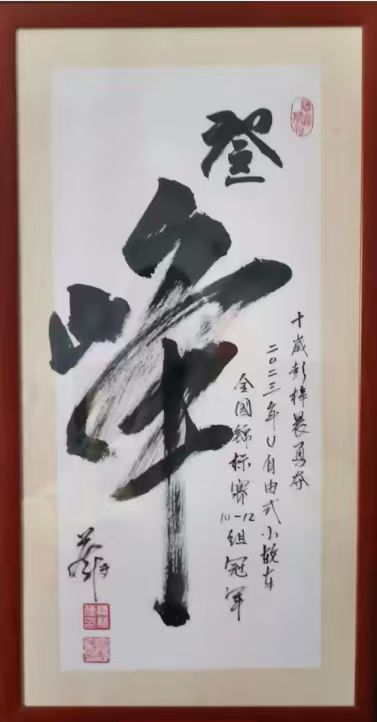 登峰
十岁彭梓晨勇夺
二〇二三年U自由式小轮车
全国锦标赛10-12组冠军